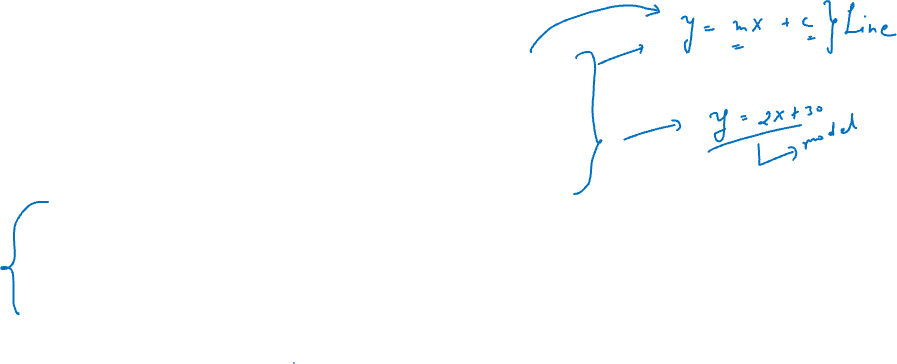 y = mx + c } Line
y = 2x + 30
model